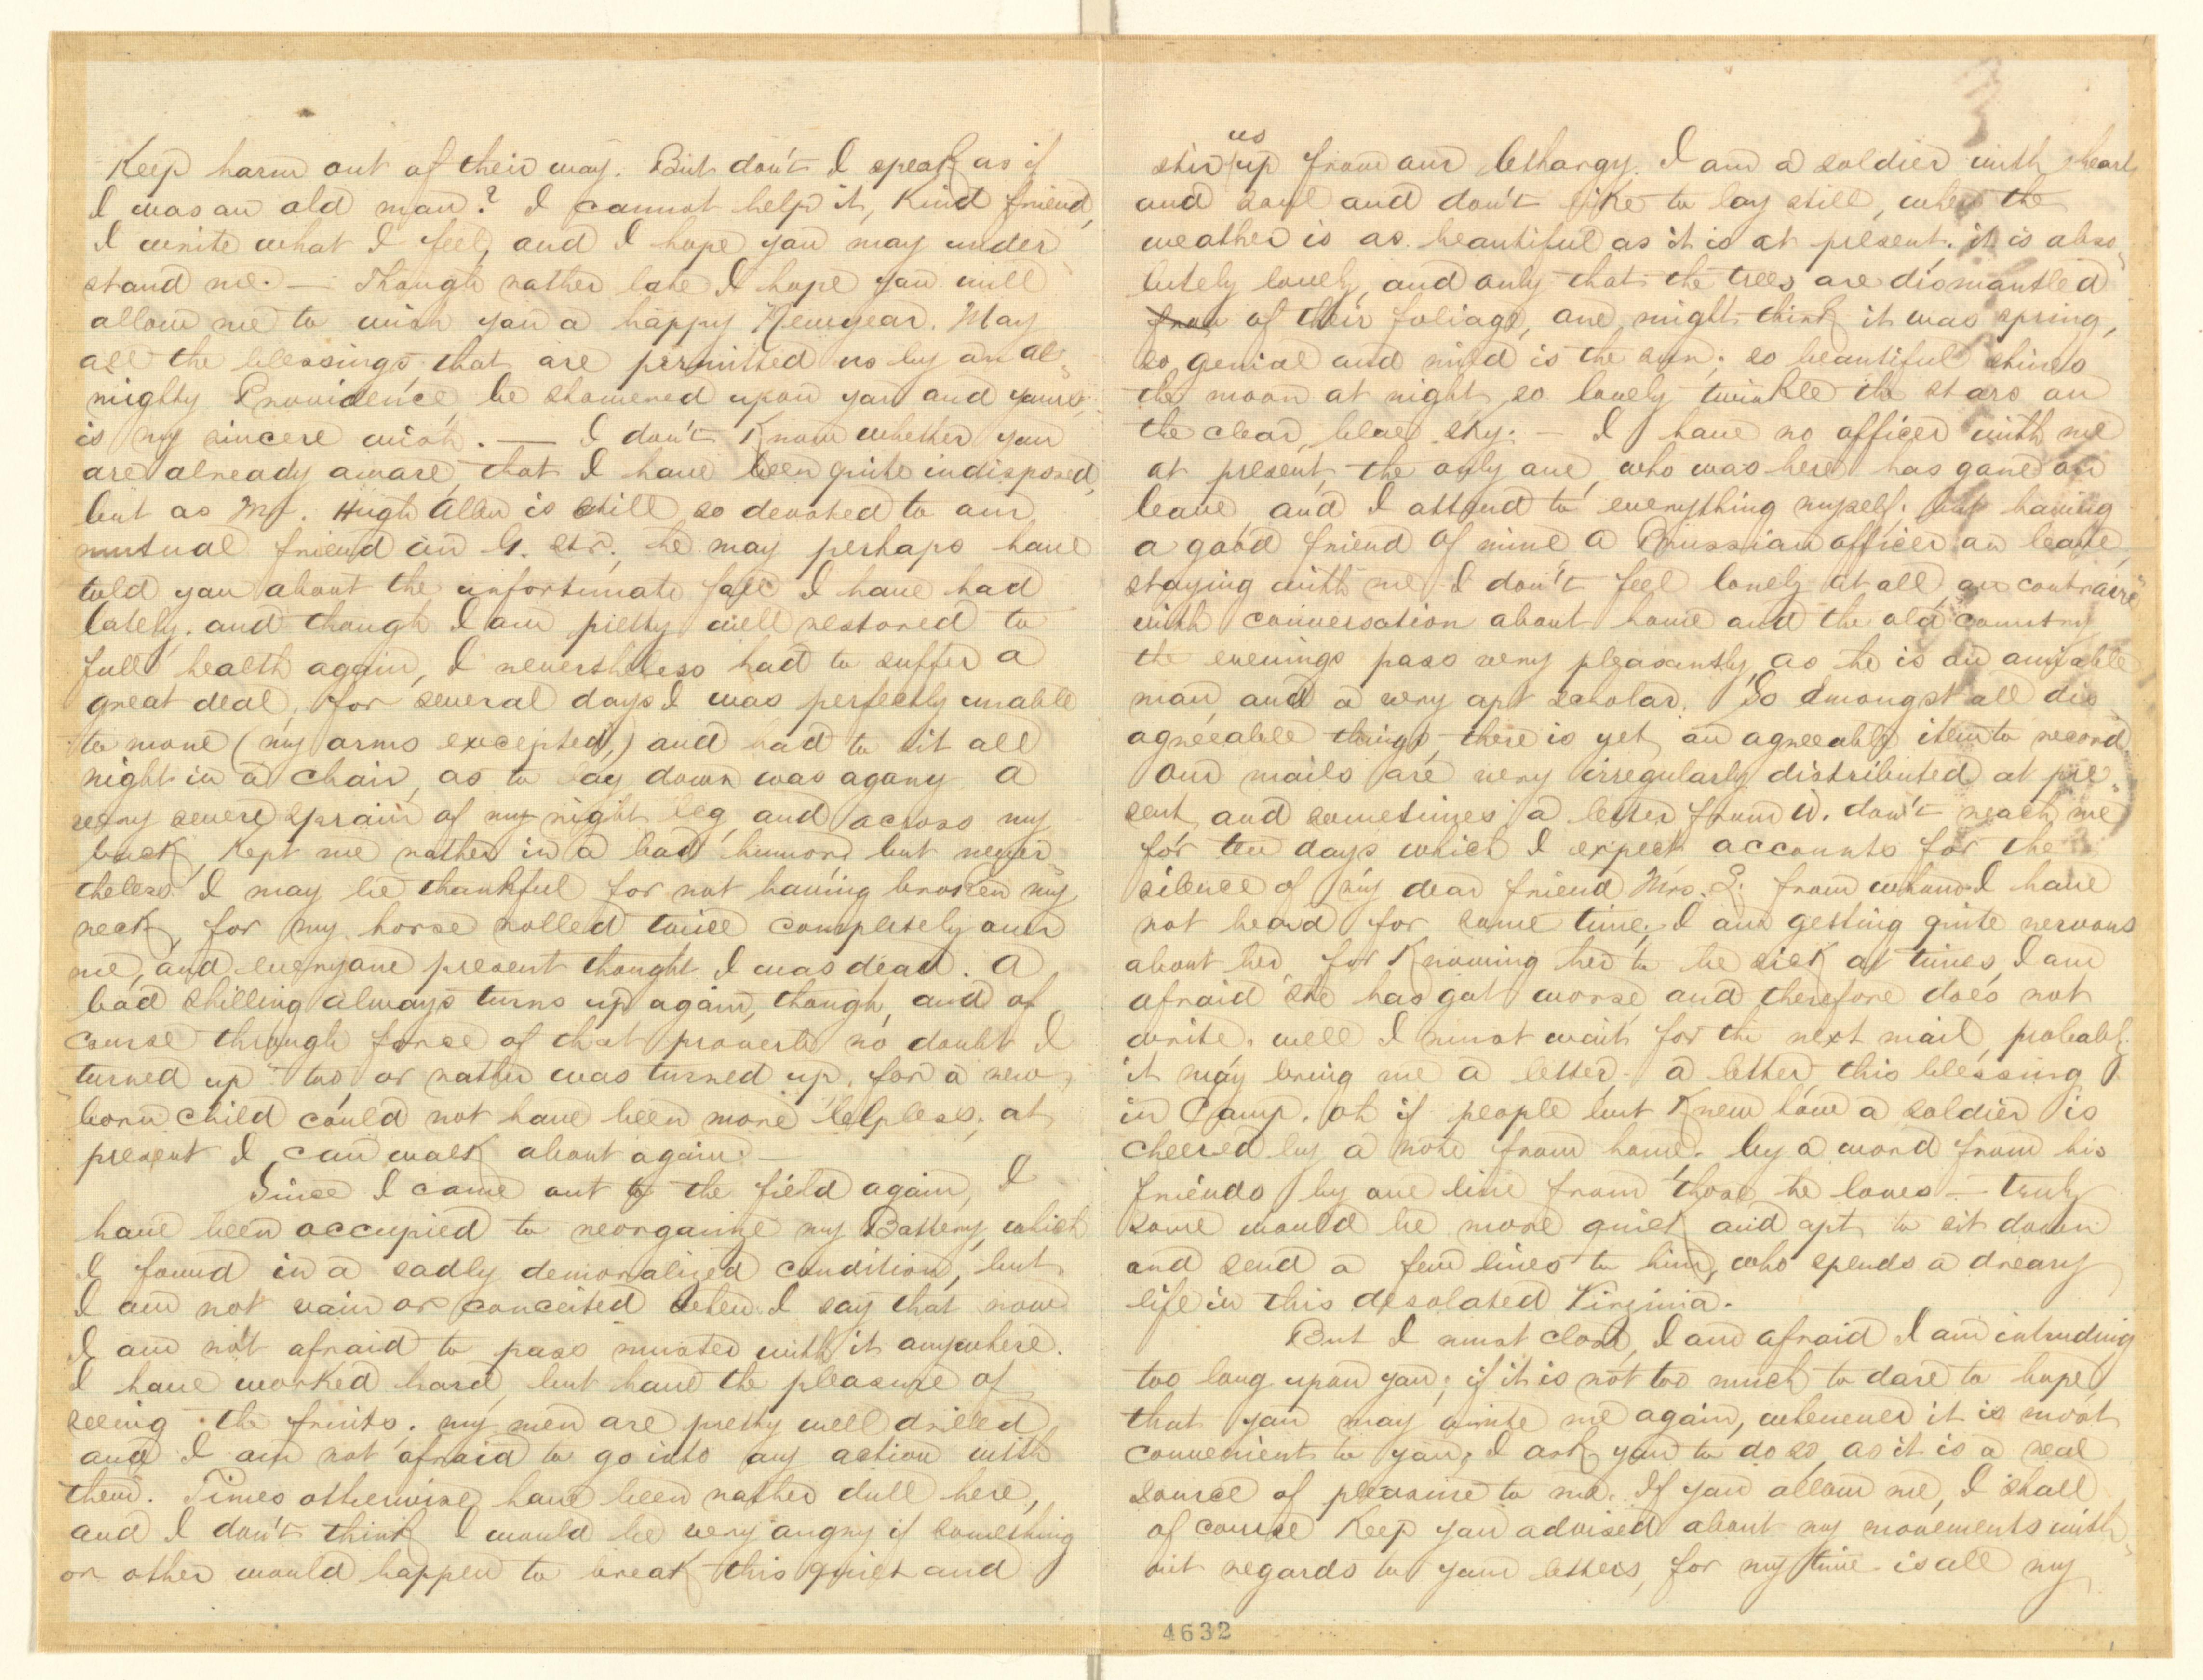 Keep harm out of their way. But don't I speak as if
I was an old man? I cannot help it, kind friend,
I write what I feel, and I hope you may under
stand me. — Though rather late I hope you will
allow me to wish you a happy Newyear. May
all the blessings that are permitted us by an al-
mighty Providence, be showered upon you and yours,
is my sincere wish. — I don't know whether you
are already aware, that I have been quite indisposed,
but as Mr. Hugh Allen is still so devoted to our
mutual friend on G. Str., he may perhaps have
told you about the unfortunate fall I have had
lately, and though I am pretty well restored to
full health again, I nevertheless had to suffer a
great deal, for several days I was perfectly unable
to move (my arms excepted,) and had to sit all
night in a chair, as to lay down was agony. A
very severe sprain of my right leg and across my
back, kept me rather in a bad humor, but never-
theless I may be thankful for not having broken my
neck, for my horse rolled twice completely over
me, and everyone present thought I was dead. A
bad shilling always turns up again, though, and of
course through force of that proverb no doubt I
turned up too, or rather was turned up, for a new-
born child could not have been more helpless, at
present I can walk about again. —
Since I came out to the field again, I
have been occupied to reorganize my Battery, which
I found in a sadly demoralized condition, but
I am not vain or conceited when I say that now
I am not afraid to pass muster with it anywhere.
I have worked hard, but have the pleasure of
seeing the fruits, my men are pretty well drilled
and I am not afraid to go into any action with
them. Times otherwise have been rather dull here,
and I don't think I would be very angry if something
or other would happen to break this quiet and
us
stir up from our lethargy. I am a soldier with heart
and soul and don't like to lay still, when the
weather is as beautiful as it is at present. it is abso-
lutely lovely, and only that the trees are dismantled
from of their foliage, one might think it was spring,
so genial and mild is the sun; so beautiful shines
the moon at night, so lovely twinkle the stars on
the clear, blue sky. — I have no officer with me
at present, the only one, who was here has gone on
leave and I attend to everything myself. but having
a good friend of mine a Prussian officer on leave,
staying with me I don't feel lonely at all, au contraire
with conversation about home and the old country
the evenings pass very pleasantly, as he is an amiable
man and a very apt scholar. So amongst all dis
agreeable things, there is yet an agreeable item to record.
Our mails are very irregularly distributed at pre-
sent, and sometimes a letter from W. don't reach me
for ten days which I expect accounts for the
silence of my dear friend Mrs. S. from whom I have
not heard for some time. I am getting quite nervous
about her, for knowing her to be sick at times, I am
afraid she has got worse and therefore does not
write. well I must wait for the next mail, probably
it may bring me a letter. a letter, this blessing
in Camp. oh if people but knew how a soldier is
cheered by a note from home. by a word from his
friends, by one line from those he loves — truly
some would be more quick and apt to sit down
and send a few lines to him, who spends a dreary
life in this desolated Virginia.
But I must close, I am afraid I am intruding
too long upon you; if it is not too much to dare to hope,
that you may write me again, whenever it is most
convenient to you, I ask you to do so, as it is a real
source of pleasure to me. If you allow me, I shall
of course keep you advised about my movements with-
out regards to your letters, for my time is all my
4632